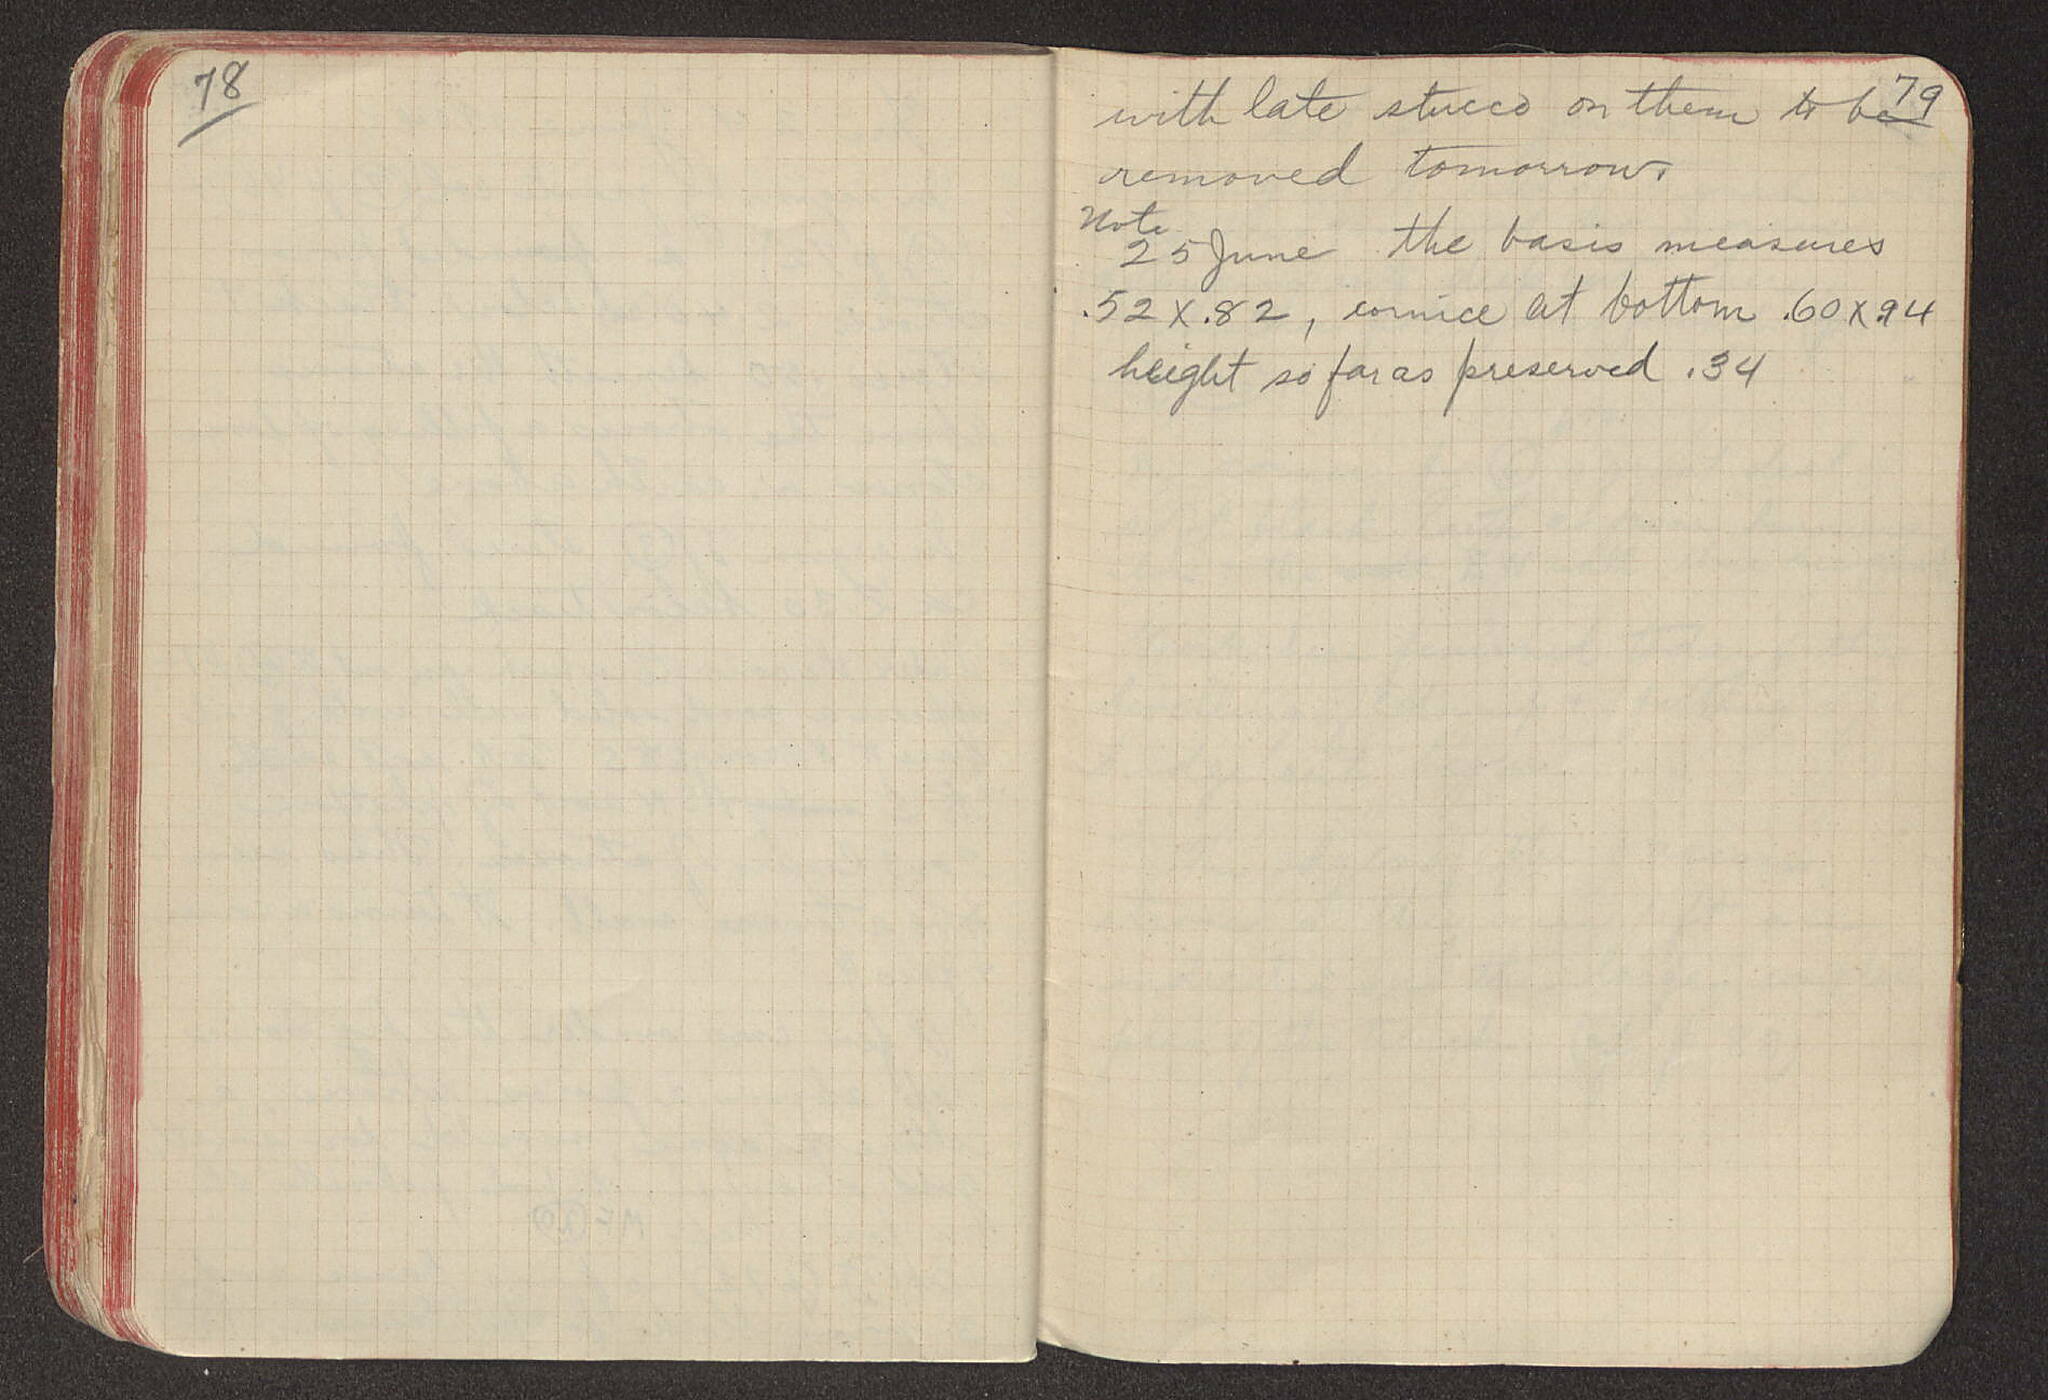 78
79
with late stucco on them to be
removed tomorrow.
Note
25 June the basis measures
.52 x .82, cornice at bottom .60 x .94
height so far as preserved .34